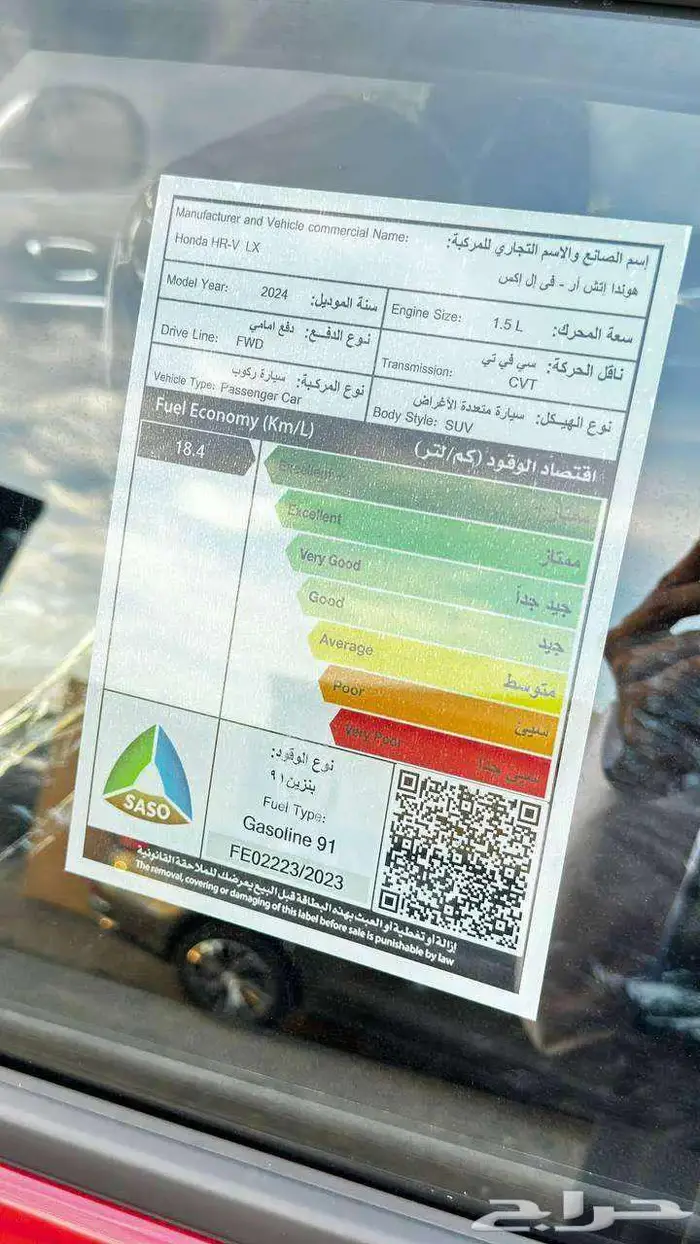 Manufacturer and Vehicle commercial Name:
إسم الصانع والاسم التجاري للمركبة:
Honda HR-V LX
هوندا إتش أر - فى إل إكس
Model Year: 2024 سنة الموديل:
Engine Size: 1.5 L سعة المحرك:
Drive Line: دفع امامي نوع الدفع:
FWD
Transmission: سي في تي ناقل الحركة:
CVT
Vehicle Type: سيارة ركوب نوع المركبة:
Passenger Car
Body Style: سيارة متعددة الأغراض نوع الهيكل:
SUV
Fuel Economy (Km/L) اقتصاد الوقود (كم/لتر)
18.4
Excellent
Excellent ممتاز
Very Good جيد جداً
Good جيد
Average متوسط
Poor سيئ
Very Poor سيئ جداً
SASO
نوع الوقود:
بنزين ٩١
Fuel Type:
Gasoline 91
FE02223/2023
إزالة أو تغطية أو العبث بهذه البطاقة قبل البيع يعرضك للملاحقة القانونية
The removal, covering or damaging of this label before sale is punishable by law
حراج